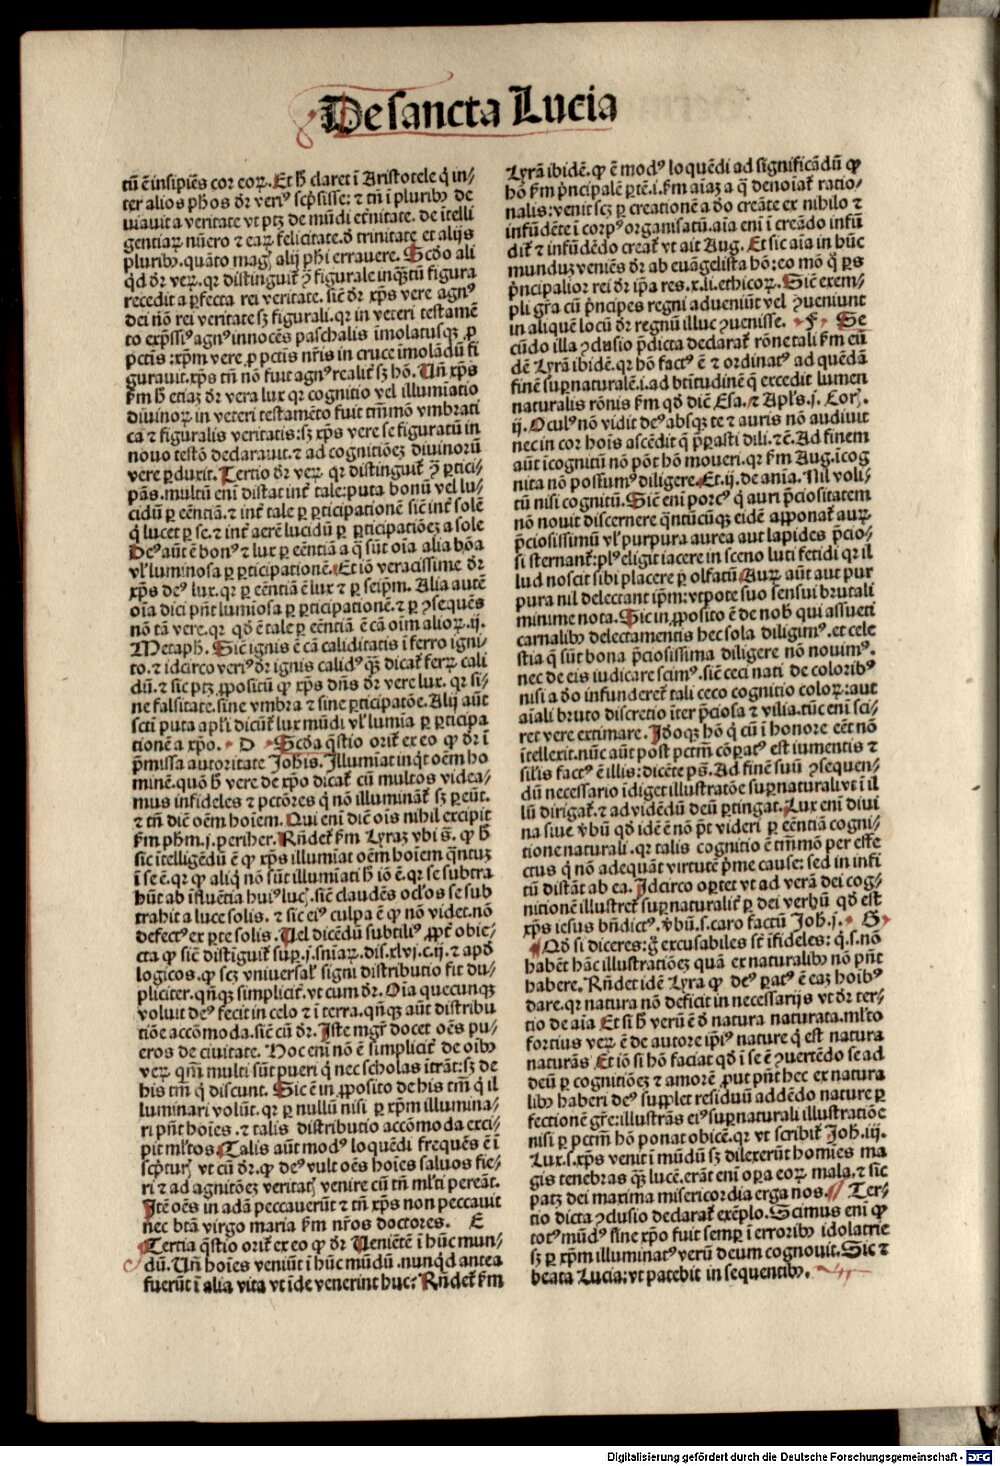 De sancta Lucia
tũ ẽ insipiẽs cor eoꝝ. Et h̃ claret ĩ Aristotele q̃ in-
ter alios phõs dr̃ verꝰ scp̃sisse: ⁊ tñ ĩ pluribꝰ de
uiauit a veritate vt ptꝫ de mũdi etr̃nitate. de ĩtelli
gentiaꝝ nũero ⁊ eaꝝ felicitate. d̃ trinitate et alijs
pluribꝰ. quãto magꝭ alij phĩ errauere. Scd̃o ali
qd̃ dr̃ veꝝ. qꝛ distinguit̃ ꝯ̃ figurale inqꝫtũ figura
recedit a ꝑfecta rei veritate. sic̃ dr̃ xp̃s vere agnꝰ
dei nõ rei veritate sꝫ figurali. qꝛ in veteri testamẽ
to exp̃ssꝰ agnꝰ innocẽs paschalis ĩmolatusqꝫ ꝓ
pctĩs: xp̃m vere ꝓ pctĩs nr̃is in cruce imolãdũ fi
gurauit. xp̃s tñ nõ fuit agnꝰ realit̃ sꝫ hõ. Uñ xp̃s
km̃ h̃ etiaꝫ dr̃ vera lux qꝛ cognitio vel illumĩatio
diuinoꝝ in veteri testamẽto fuit tm̃mõ vmbrati
ca ⁊ figuralis veritatis: sꝫ xp̃s vere se figuratũ in
nouo testõ declarauit. ⁊ ad cognitiõeꝫ diuinorũ
vere ꝑduxit. Tertio dr̃ veꝝ qꝛ distinguit̃ ꝯ̃ ꝑtici-
pãs. multũ eni distat int̃ tale: puta bonũ vel lu-
cidũ ꝑ eẽntiã. ⁊ int̃ tale ꝑ ꝑticipationẽ sic̃ int̃ solẽ
q̃ lucet ꝑ se. ⁊ int̃ aerẽ lucidũ ꝑ ꝑticipatiõeꝫ a sole
Deꝰ aũt ẽ bonꝰ ⁊ lux ꝑ eẽntiã a q̃ sũt oĩa alia bõa
vl̃ luminosa ꝑ ꝑticipationẽ. Et iõ veracissime dr̃
xp̃s deꝰ lux. qꝛ ꝑ eẽntiã ẽ lux ⁊ ꝑ seip̃m. Alia autẽ
oĩa dici pñt lumĩosa ꝑ ꝑticipationẽ. ⁊ ꝑ ꝯsequẽs
nõ tã vere. qꝛ qd̃ ẽ tale ꝑ eẽntiã ẽ cã oĩm alioꝝ. ij.
Metaph̃. Sic̃ ignis ẽ cã caliditatis ĩ ferro igni-
to. ⁊ idcirco verꝰ dr̃ ignis calidꝰ qꝫ̃ dicat̃ ferꝝ cali
dũ. ⁊ sic ptꝫ ꝓpositũ qꝙ xp̃s dñs dr̃ vere lux. qꝛ si-
ne falsitate. sine vmbra ⁊ sine ꝑticipatõe. Alij aũt
scti puta apl̃i dicũt̃ lux mũdi vl̃ lumia ꝑ ꝑticipa
tionẽ a xp̃o. D Scd̃a q̃stio orit̃ ex eo ꝙ dr̃ ĩ
p̃missa autoritate Johis. Illumiat inq̃t oẽm ho
minẽ. quõ h̃ vere de xp̃o dicat̃ cũ multos videa-
mus infideles ⁊ pctõres q̃ nõ illuminãt̃ sꝫ ꝑeũt.
⁊ tñ diẽ oẽm hoĩem. Qui enĩ diẽ oĩs nihil excipit
km̃ phm̃. j. periher. Rñdet̃ km̃ Lyraꝫ vbi s̃. ꝙ h̃
sic ĩtelligẽdũ ẽ ꝙ xp̃s illumĩat oẽm hoĩem q̃ntuꝫ
ĩ se ẽ. qꝛ ꝙ aliq̃ nõ sũt illumĩati h̃ iõ ẽ. qꝛ se subtra
hũt ab ĩfluẽtia huiꝰ lucꝭ. sic̃ claudẽs ocl̃os se sub
trahit a luce solis. ⁊ sic eiꝰ culpa ẽ ꝙ nõ videt. nõ
defectꝰ ex ꝑte solis. Uel dicẽdũ subtiliꝰ ꝓpt̃ obie-
cta ꝙ sic̃ distĩguit̃ suꝑ. j. sniaꝝ. dis. xlvj. c. ij. ⁊ apd̃
logicos. ꝙ scꝫ vniuersal̃ signi distributio fit du-
pliciter. qñqꝫ simplicit̃. vt cum dr̃. Oĩa quecunqꝫ
voluit deꝰ fecit in celo ⁊ ĩ terra. qñqꝫ aũt distribu
tiõe accõmoda. sic̃ cũ dr̃. Iste mgr̃ docet oẽs pu-
eros de ciuitate. Hoc enĩ nõ ẽ simplicit̃ de oĩbꝰ
veꝝ qm̃ multi sũt pueri q̃ nec scholas ĩtrãt: sꝫ de
his tm̃ q̃ discunt. Sic ẽ in ꝓposito de his tm̃ q̃ il
luminari volũt. qꝛ ꝑ nullũ nisi ꝑ xp̃m illumina-
ri pñt hoĩes. ⁊ talis distributio accõmoda exci-
pit ml̃tos. Talis aũt modꝰ loquẽdi frequẽs ẽ ĩ
scp̃turꝭ vt cũ dr̃. ꝙ deꝰ vult oẽs hoĩes saluos fie-
ri ⁊ ad agnitõeꝫ veritatꝭ venire cũ tñ ml̃ti pereãt.
Itẽ oẽs in adã peccauerũt ⁊ tñ xp̃s non peccauit
nec btã virgo maria km̃ nr̃os doctores. E
Tertia q̃stio orit̃ ex eo ꝙ dr̃ Ueniẽtẽ ĩ hũc mun-
dũ. Uñ hoĩes veniũt ĩ hũc mũdũ. nunqd̃ antea
fuerũt ĩ alia vita vt ĩde venirint huc? Rñdet̃ km̃
Lyrã ibidẽ. ꝙ ẽ modꝰ loquẽdi ad significãdũ ꝙ
hõ km̃ p̃ncipalẽ ꝑtẽ. i. km̃ aĩaꝫ a q̃ denoĩat̃ ratio-
nalis: venit scꝫ ꝑ creationẽ a d̃o creãte ex nihilo ⁊
infũdẽte ĩ corpꝰ organisatũ. aĩa enĩ ĩ creãdo infũ
dit̃ ⁊ infũdẽdo creat̃ vt ait Aug. Et sic aĩa in hũc
munduꝫ veniẽs dr̃ ab euãgelista hõ: eo mõ q̃ ꝑs
p̃ncipalior rei dr̃ ip̃a res. x. li. ethicoꝝ. Sic̃ exem-
pli gr̃a cũ p̃ncipes regni adueniũt vel ꝯueniunt
in aliquẽ locũ dr̃ regnũ illuc ꝯuenisse. F Se
cũdo illa ꝯclusio p̃dicta declarat̃ rõne tali km̃ eũ
dẽ Lyrã ibidẽ. qꝛ hõ factꝰ ẽ ⁊ ordinatꝰ ad quẽdã
finẽ suꝑnaturalẽ. i. ad btĩtudinẽ q̃ excedit lumen
naturalis rõnis km̃ qd̃ diẽ Esa. ⁊ Apl̃s. j. Corꝭ.
ij. Oculꝰ nõ vidit deꝰ absqꝫ te ⁊ auris nõ audiuit
nec in cor hoĩs ascẽdit q̃ p̃ꝑasti dili. ⁊c̃. Ad finem
aũt ĩcognitũ nõ põt hõ moueri. qꝛ km̃ Aug. ĩcog
nita nõ possumꝰ diligere. Et. ij. de anĩa. Nil voli-
tũ nisi cognitũ. Sic̃ enĩ porcꝰ q̃ auri p̃ciositatem
nõ nouit discernere q̃ntũcũqꝫ eidẽ apponat̃ auꝝ
p̃ciosissimũ vl̃ purpura aurea aut lapides p̃cio-
si sternant̃: plꝰ eligit iacere in sceno luti fetidi qꝛ il
lud noscit sibi placere ꝑ olfatũ. Auꝝ aũt aut pur
pura nil delectant ip̃m: vtpote suo sensui brutali
minime nota. Sic in ꝓposito ẽ de nob̃ qui assueti
carnalibꝰ delectamentis hec sola diligimꝰ. et cele
stia q̃ sũt bona p̃ciosissima diligere nõ nouimꝰ.
nec de eis iudicare scimꝰ. sic̃ ceci nati de coloribꝰ
nisi a d̃o infunderet̃ tali ceco cognitio coloꝝ: aut
aĩali bruto discretio ĩter p̃ciosa ⁊ vilia. tũc enĩ sci-
ret vere extimare. Idoqꝫ hõ q̃ cũ ĩ honore eẽt nõ
ĩtellexit. nũc aũt post pctm̃ cõꝑatꝰ est iumentis ⁊
sil̃is factꝰ ẽ illis: dicẽte ps̃. Ad finẽ suũ ꝯsequen-
dũ necessario ĩdiget illustratõe suꝑnaturali vt ĩ il
lũ dirigat̃. ⁊ ad vidẽdũ deũ ꝑtingat. Lux enĩ diui
na siue ṽbũ qd̃ idẽ ẽ nõ p̃t videri ꝑ eẽntiã cogni-
tione naturali. qꝛ talis cognitio ẽ tm̃mõ per effe
ctus q̃ nõ adequãt virtutẽ p̃me cause: sed in infi
tũ distãt ab ea. Idcirco oꝑtet vt ad verã dei cog-
nitionẽ illustret̃ suꝑnaturalit̃ ꝑ dei verbũ qd̃ est
xp̃s iesus bñdictꝰ. ṽbũ. s. caro factũ Joh. j. G
Qd̃ si diceres: g̃ excusabiles st̃ ĩfideles: q̃. s. nõ
habẽt hãc illustratiõeꝫ quã ex naturalibꝰ nõ pñt
habere. Rñdet idẽ Lyra ꝙ deꝰ ꝑatꝰ ẽ eaꝫ hoĩbꝰ
dare. qꝛ natura nõ deficit in necessarijs vt dr̃ ter-
tio de aĩa Et si h̃ verũ ẽ d̃ natura naturata. ml̃to
fortius veꝝ ẽ de autore ip̃iꝰ nature q̃ est natura
naturãs Et iõ si hõ faciat qd̃ ĩ se ẽ ꝯuertẽdo se ad
deũ ꝑ cognitiõeꝫ ⁊ amorẽ ꝓut pñt hec ex natura
libꝰ haberi deꝰ supplet residuũ addẽdo nature ꝑ
fectionẽ gr̃e: illustrãs eiꝰ suꝑnaturali illustratiõe
nisi ꝑ pctm̃ hõ ponat obicẽ. qꝛ vt scribit̃ Joh. iij.
Lux. s. xp̃s venit ĩ mũdũ sꝫ dilexerũt homĩes ma
gis tenebras qꝫ̃ lucẽ. erãt enĩ oꝑa eoꝝ mala. ⁊ sic
patꝫ dei maxima misericordia erga nos. Ter-
tio dicta ꝯclusio declarat̃ exẽplo. Scimus enĩ ꝙ
totꝰ mũdꝰ sine xp̃o fuit semꝑ ĩ erroribꝰ idolatrie
sꝫ ꝑ xp̃m illuminatꝰ verũ deum cognouit. Sic ⁊
beata Lucia: vt patebit in sequentibꝰ.
Digitalisierung gefördert durch die Deutsche Forschungsgemeinschaft - DFG